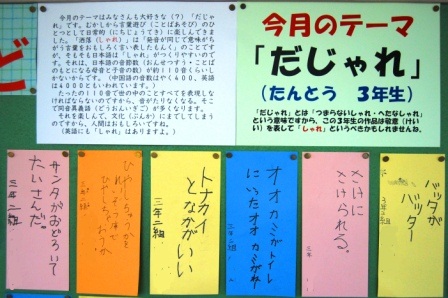 今月のテーマはみなさんも大好きな(?)「だじゃ
れ」です。むかしから言葉遊び(ことばあそび)のひ
とつとして日常的(にちじょうてき)に楽しんできま
した。「洒落(しゃれ)」は「発音が同じで意味がち
がう言葉をおもしろく言い表したもの。」のことです
が、そもそも日本語は「しゃれ」がつくりやすいので
す。それは、日本語の音節数(おんせつすう・ことば
のもとになる母音と子音の数)が約110音くらいし
かないからです。(中国語の音数はやく400、英語
は4000ともいわれています。)
たったの110音で世の中のことすべてを表現しな
ければならないのですから、音がたりなくなる。そこ
で同音異義語(どうおんいぎご)が多くなります。
それを楽しんで、文化(ぶんか)にまでしてしまう
のですから、人間はおもしろいですね。
(英語にも「しゃれ」はありますよ。)
今月のテーマ
「だじゃれ」
(たんとう 3年生)
「だじゃれ」とは「つまらないしゃれ・へたなしゃれ」
という意味ですから、この3年生の作品は敬意(けい
い)を表して「しゃれ」というべきかもしれませんね。
ど
バッタが
バッター
3年二組
さけに
さけられる。
三年
オオカミがトイレ
にいったオオカミがねー
三年二組
トナカイ
となかがいい
三年二組
サンタがおどろいて
たいさんだ。
三年二組